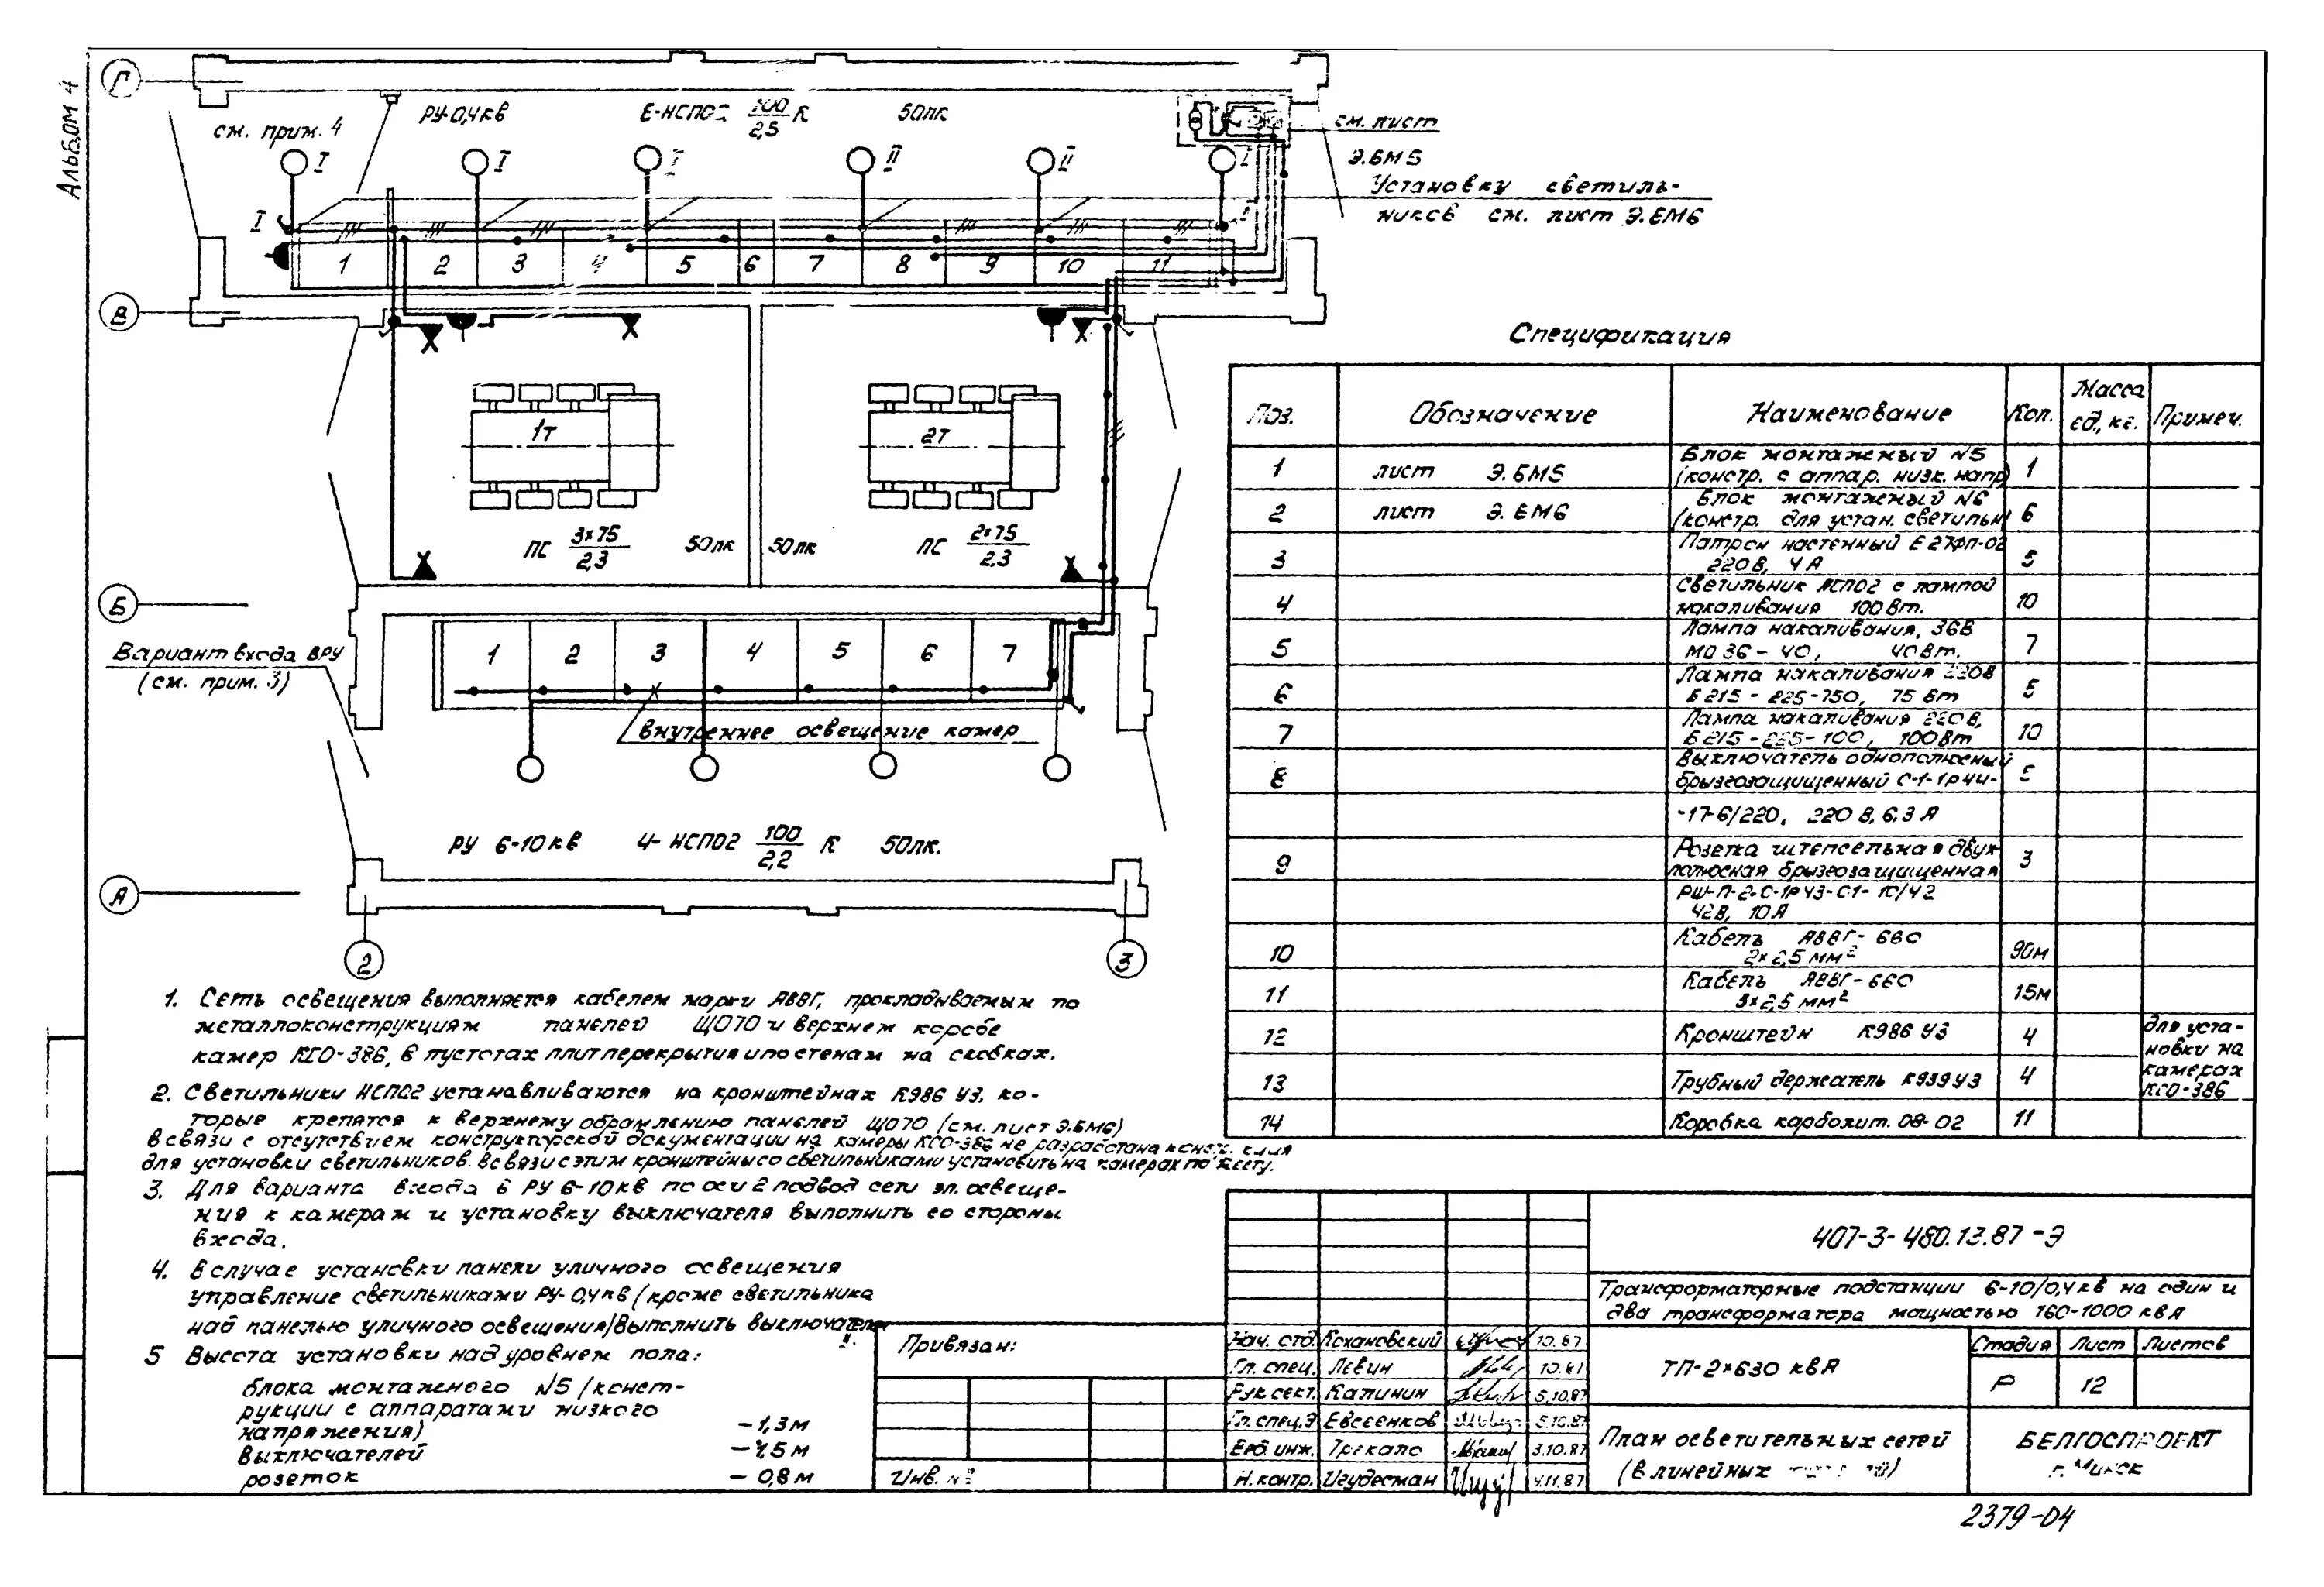 Альбом 4
Г
см. прим. 4
РУ-0,4кв
6-НСП02 100/2,5 К
50лк
см. лист
Э.БМ5
Установку светиль-
ников см. лист Э.БМ6
I
I
I
II
II
I
I
1 2 3 4 5 6 7 8 9 10 11
В
1т
2т
ПС 3×75/2,3
50лк
50лк
ПС 2×75/2,3
Б
Вариант входа в РУ
(см. прим. 3)
1 2 3 4 5 6 7
Внутреннее освещение камер
РУ 6-10кв
4-НСП02 100/2,2 К
50лк.
А
2
3
Спецификация
Поз. Обозначение Наименование Кол. Масса ед., кг. Примеч.
1 лист Э.БМ5 Блок монтажный N5 (констр. с аппар. низк. напр) 1
2 лист Э.БМ6 Блок монтажный N6 (констр. для устан. светильн) 6
3 Патрон настенный Е27ФП-02 220В, 4А 5
4 Светильник НСП02 с лампой накаливания 100Вт. 10
5 Лампа накаливания, 36В МО 36-40, 40Вт. 7
6 Лампа накаливания 220В Б215-225-750, 75Вт 5
7 Лампа накаливания 220В, Б215-225-100, 100Вт 10
8 Выключатель однополюсный брызгозащищенный С-1-1Р44- 5
-17-6/220, 220В, 6.3А
9 Розетка штепсельная двух полюсная брызгозащищенная 3
РШ-П-2-С-1Р43-01-10/42
42В, 10А
10 Кабель АВВГ-660 2×2,5 мм² 90м
11 Кабель АВВГ-660 3×2,5 мм² 15м
12 Кронштейн К986 У3 4 для уста-
новки на
13 Трубный держатель К939У3 4 камерах
КСО-386
14 Коробка карболит. 08-02 11
1. Сеть освещения выполняется кабелем марки АВВГ, прокладываемым по
металлоконструкциям панелей ЩО70 и верхнем коробе
камер КСО-386, в пустотах плит перекрытия и по стенам на скобках.
2. Светильники НСП02 устанавливаются на кронштейнах К986 У3, ко-
торые крепятся к верхнему обрамлению панелей ЩО70 (см. лист Э.БМ6)
В связи с отсутствием конструкторской документации на камеры КСО-386 не разработана конст. кция
для установки светильников. В связи с этим кронштейны со светильниками установить на камерах по месту.
3. Для варианта входа в РУ 6-10кв по оси 2 подвод сети эл. освеще-
ния к камерам и установку выключателя выполнить со стороны
входа.
4. В случае установки панели уличного освещения
управление светильниками РУ-0,4кв (кроме светильника
над панелью уличного освещения) выполнить выключателем
II.
5 Высота установки над уровнем пола:
блока монтажного N5 (конст-
рукции с аппаратами низкого
напряжения) – 1,3м
выключателей – 1,5м
розеток – 0,8м
Привязан:
Инв. №
407-3-480.13.87-Э
Трансформаторные подстанции 6-10/0,4кв на один и
два трансформатора мощностью 160-1000 квА
Нач. отд. Кохановский 10.87
Гл. спец. Левин 10.87
Рук.сект. Калинин 5.10.87
Гл.спец.Э Евсеенков 5.10.87
Вед. инж. Трекало 3.10.87
Н.контр. Игудесман 4.11.87
ТП-2×630 квА
Стадия Лист Листов
Р 12
План осветительных сетей
(в линейных
БЕЛГОСПРОЕКТ
г. Минск
2379-04